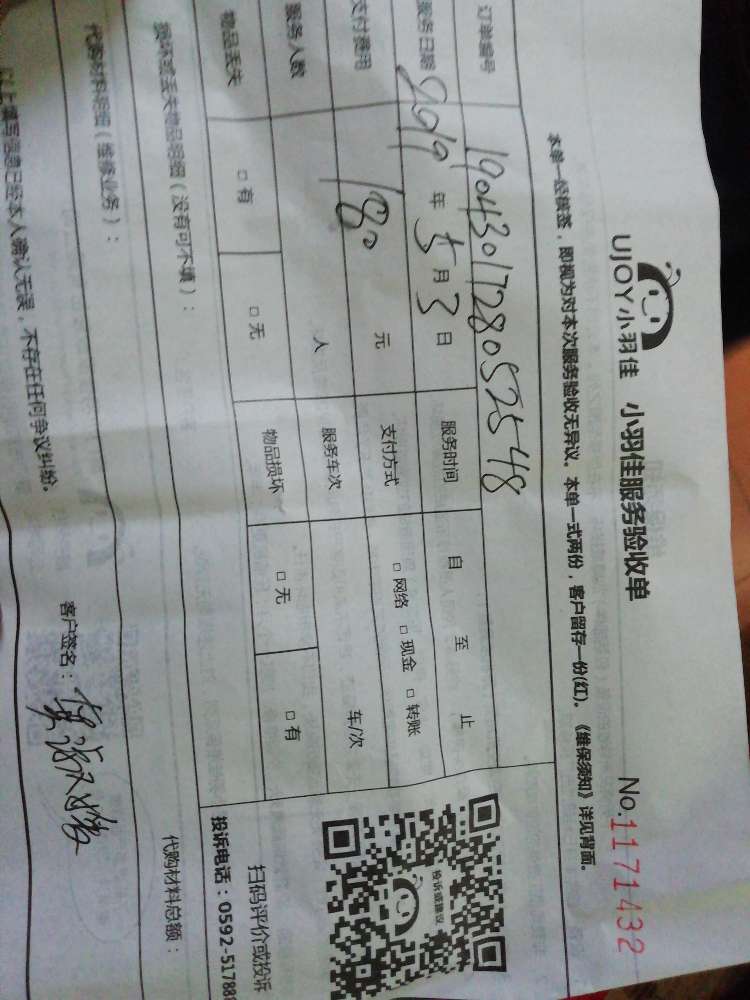 UJOY小羽佳 小羽佳服务验收单 No.1171432
本单一经核签，即视为对本次服务验收无异议。本单一式两份，客户留存一份(红)。《维保须知》详见背面。
订单编号 190430172805 2548
服务日期 2019年5月3日 服务时间 自 至 止
支付费用 180 元 支付方式 □网络 □现金 □转账
服务人数 人 服务车次 车/次
物品丢失 □有 □无 物品损坏 □无 □有
投诉或建议
扫码评价或投诉
投诉电话：0592-51788
损坏或丢失物品明细（没有可不填）：
代购材料明细（维修业务）： 代购材料总额：
以上填写信息已经本人确认无误，不存在任何争议纠纷。 客户签名：